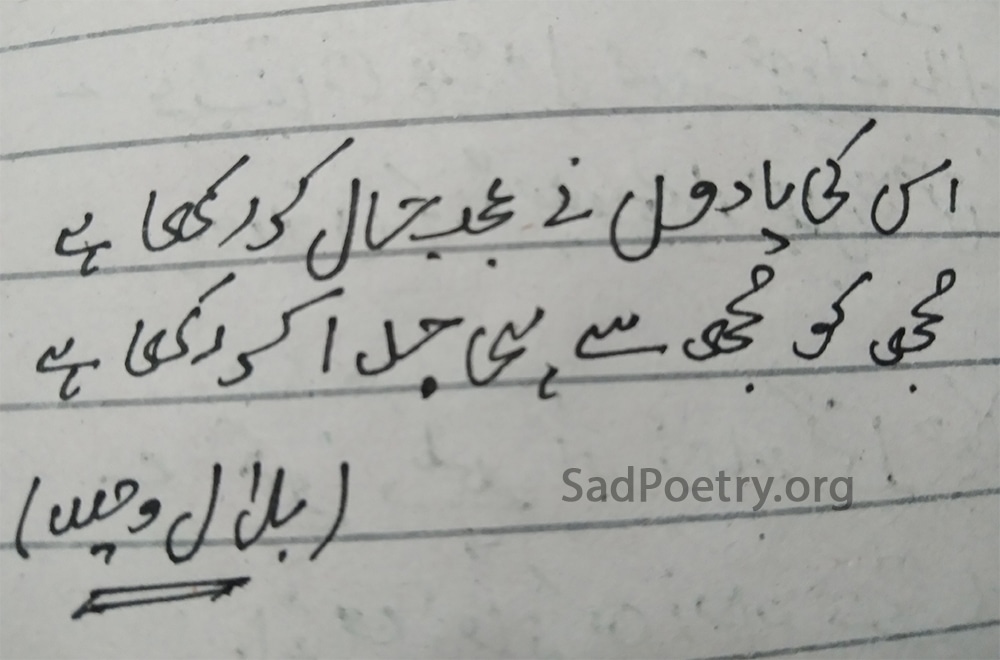 اس کی یادوں نے عجب حال کر رکھا ہے
مجھ کو مجھ سے ہی جدا کر رکھا ہے
SadPoetry.org
(بلال وحید)